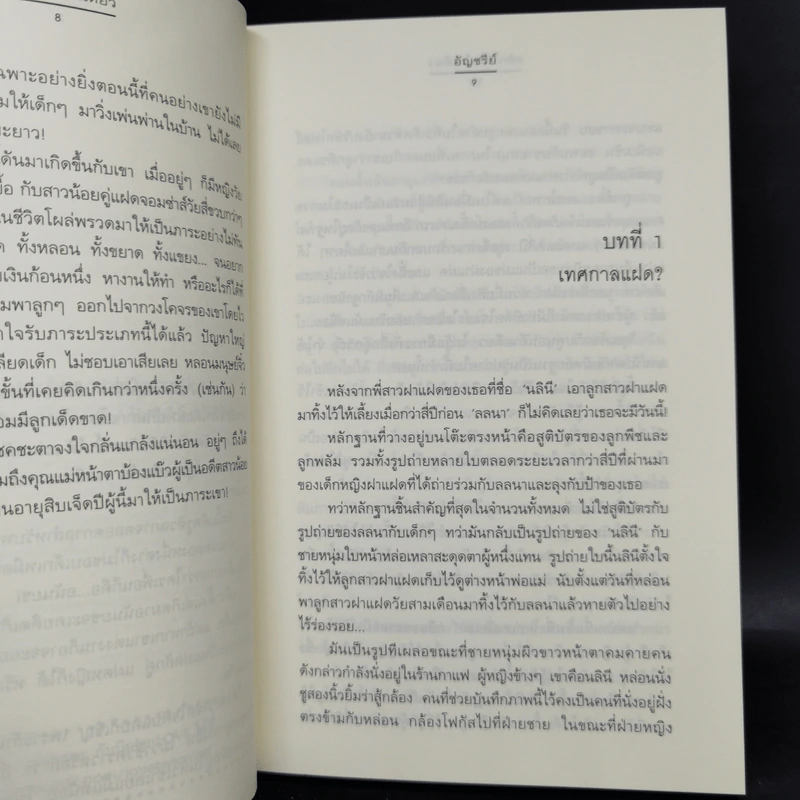 8
ฉพาะอย่างยิ่งตอนนี้ที่คนอย่างเขายังไม่มี
มให้เด็กๆ มาวิ่งเพ่นพ่านในบ้าน ไม่ได้เลย
ะยาว!
ดันมาเกิดขึ้นกับเขา เมื่ออยู่ๆ ก็มีหญิงวัย
กับสาวน้อยคู่แฝดจอมซ่าส์วัยสี่ขวบกว่าๆ
นชีวิตโผล่พรวดมาให้เป็นภาระอย่างไม่ทัน
ทั้งหลอน ทั้งขยาด ทั้งแขยง... จนอยาก
เงินก้อนหนึ่ง หางานให้ทำ หรืออะไรก็ได้ที่
มพาลูกๆ ออกไปจากวงโคจรของเขาโดยไว
าใจรับภาระประเภทนี้ได้แล้ว ปัญหาใหญ่
ลียดเด็ก ไม่ชอบเอาเสียเลย หลอนมนุษย์จิ๋ว
ขั้นที่เคยคิดเกินกว่าหนึ่งครั้ง (เช่นกัน) ว่า
อมมีลูกเด็ดขาด!
ชคชะตาจงใจกลั่นแกล้งแน่นอน อยู่ๆ ถึงได้
มถึงคุณแม่หน้าตาบ้องแบ๊วผู้เป็นอดีตสาวน้อย
นอายุสิบเจ็ดปีผู้นี้มาให้เป็นภาระเขา!
อัญชรีย์
๙
บทที่ 1
เทศกาลแฝด?
หลังจากพี่สาวฝาแฝดของเธอที่ชื่อ ‘นลินี’ เอาลูกสาวฝาแฝด
มาทิ้งไว้ให้เลี้ยงเมื่อกว่าสี่ปีก่อน ‘ลลนา’ ก็ไม่คิดเลยว่าเธอจะมีวันนี้!
หลักฐานที่วางอยู่บนโต๊ะตรงหน้าคือสูติบัตรของลูกพีชและ
ลูกพลัม รวมทั้งรูปถ่ายหลายใบตลอดระยะเวลากว่าสี่ปีที่ผ่านมา
ของเด็กหญิงฝาแฝดที่ได้ถ่ายร่วมกับลลนาและลุงกับป้าของเธอ
ทว่าหลักฐานชิ้นสำคัญที่สุดในจำนวนทั้งหมด ไม่ใช่สูติบัตรกับ
รูปถ่ายของลลนากับเด็กๆ ทว่ามันกลับเป็นรูปถ่ายของ ‘นลินี’ กับ
ชายหนุ่มใบหน้าหล่อเหลาสะดุดตาผู้หนึ่งแทน รูปถ่ายใบนี้นลินีตั้งใจ
ทิ้งไว้ให้ลูกสาวฝาแฝดเก็บไว้ดูต่างหน้าพ่อแม่ นับตั้งแต่วันที่หล่อน
พาลูกสาวฝาแฝดวัยสามเดือนมาทิ้งไว้กับลลนาแล้วหายตัวไปอย่าง
ไร้ร่องรอย...
มันเป็นรูปทีเผลอขณะที่ชายหนุ่มผิวขาวหน้าตาคมคายคน
ดังกล่าวกำลังนั่งอยู่ในร้านกาแฟ ผู้หญิงข้างๆ เขาคือนลินี หล่อนนั่ง
ชูสองนิ้วยิ้มร่าสู้กล้อง คนที่ช่วยบันทึกภาพนี้ไว้คงเป็นคนที่นั่งอยู่ฝั่ง
ตรงข้ามกับหล่อน กล้องโฟกัสไปที่ฝ่ายชาย ในขณะที่ฝ่ายหญิง